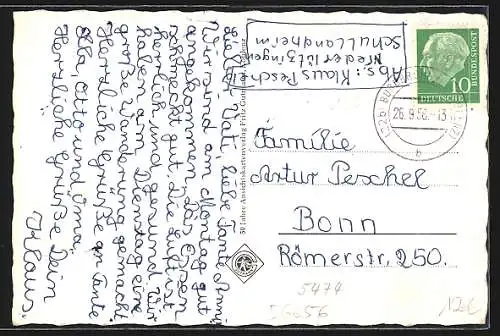 Abs.: Klaus Peschel
Niederlützingen
Schullandheim
Lieber Vati, liebe Tante Anni,
Wir sind am Montag gut
angekommen. Das Essen
schmeckt gut, die Luft ist
herrlich und gesund. Wir
haben am Dienstag eine
große Wanderung gemacht.
Herzliche Grüße an Tante
Ella, Otto und Oma.
Herzliche Grüße Dein
Klaus.
50 Jahre Ansichtskartenverlag Fritz
DEUTSCHE
BUNDESPOST
10
(22b)
26.9.56.-13
b
Familie
Artur Peschel
Bonn
Römerstr. 250.
5474